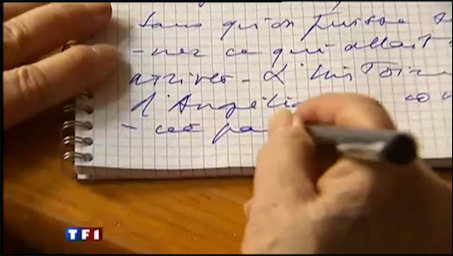 sans qu'on puisse
-ner ce qui allait
arriver - L'histoire
d'Angéli
- cet pa
TF1